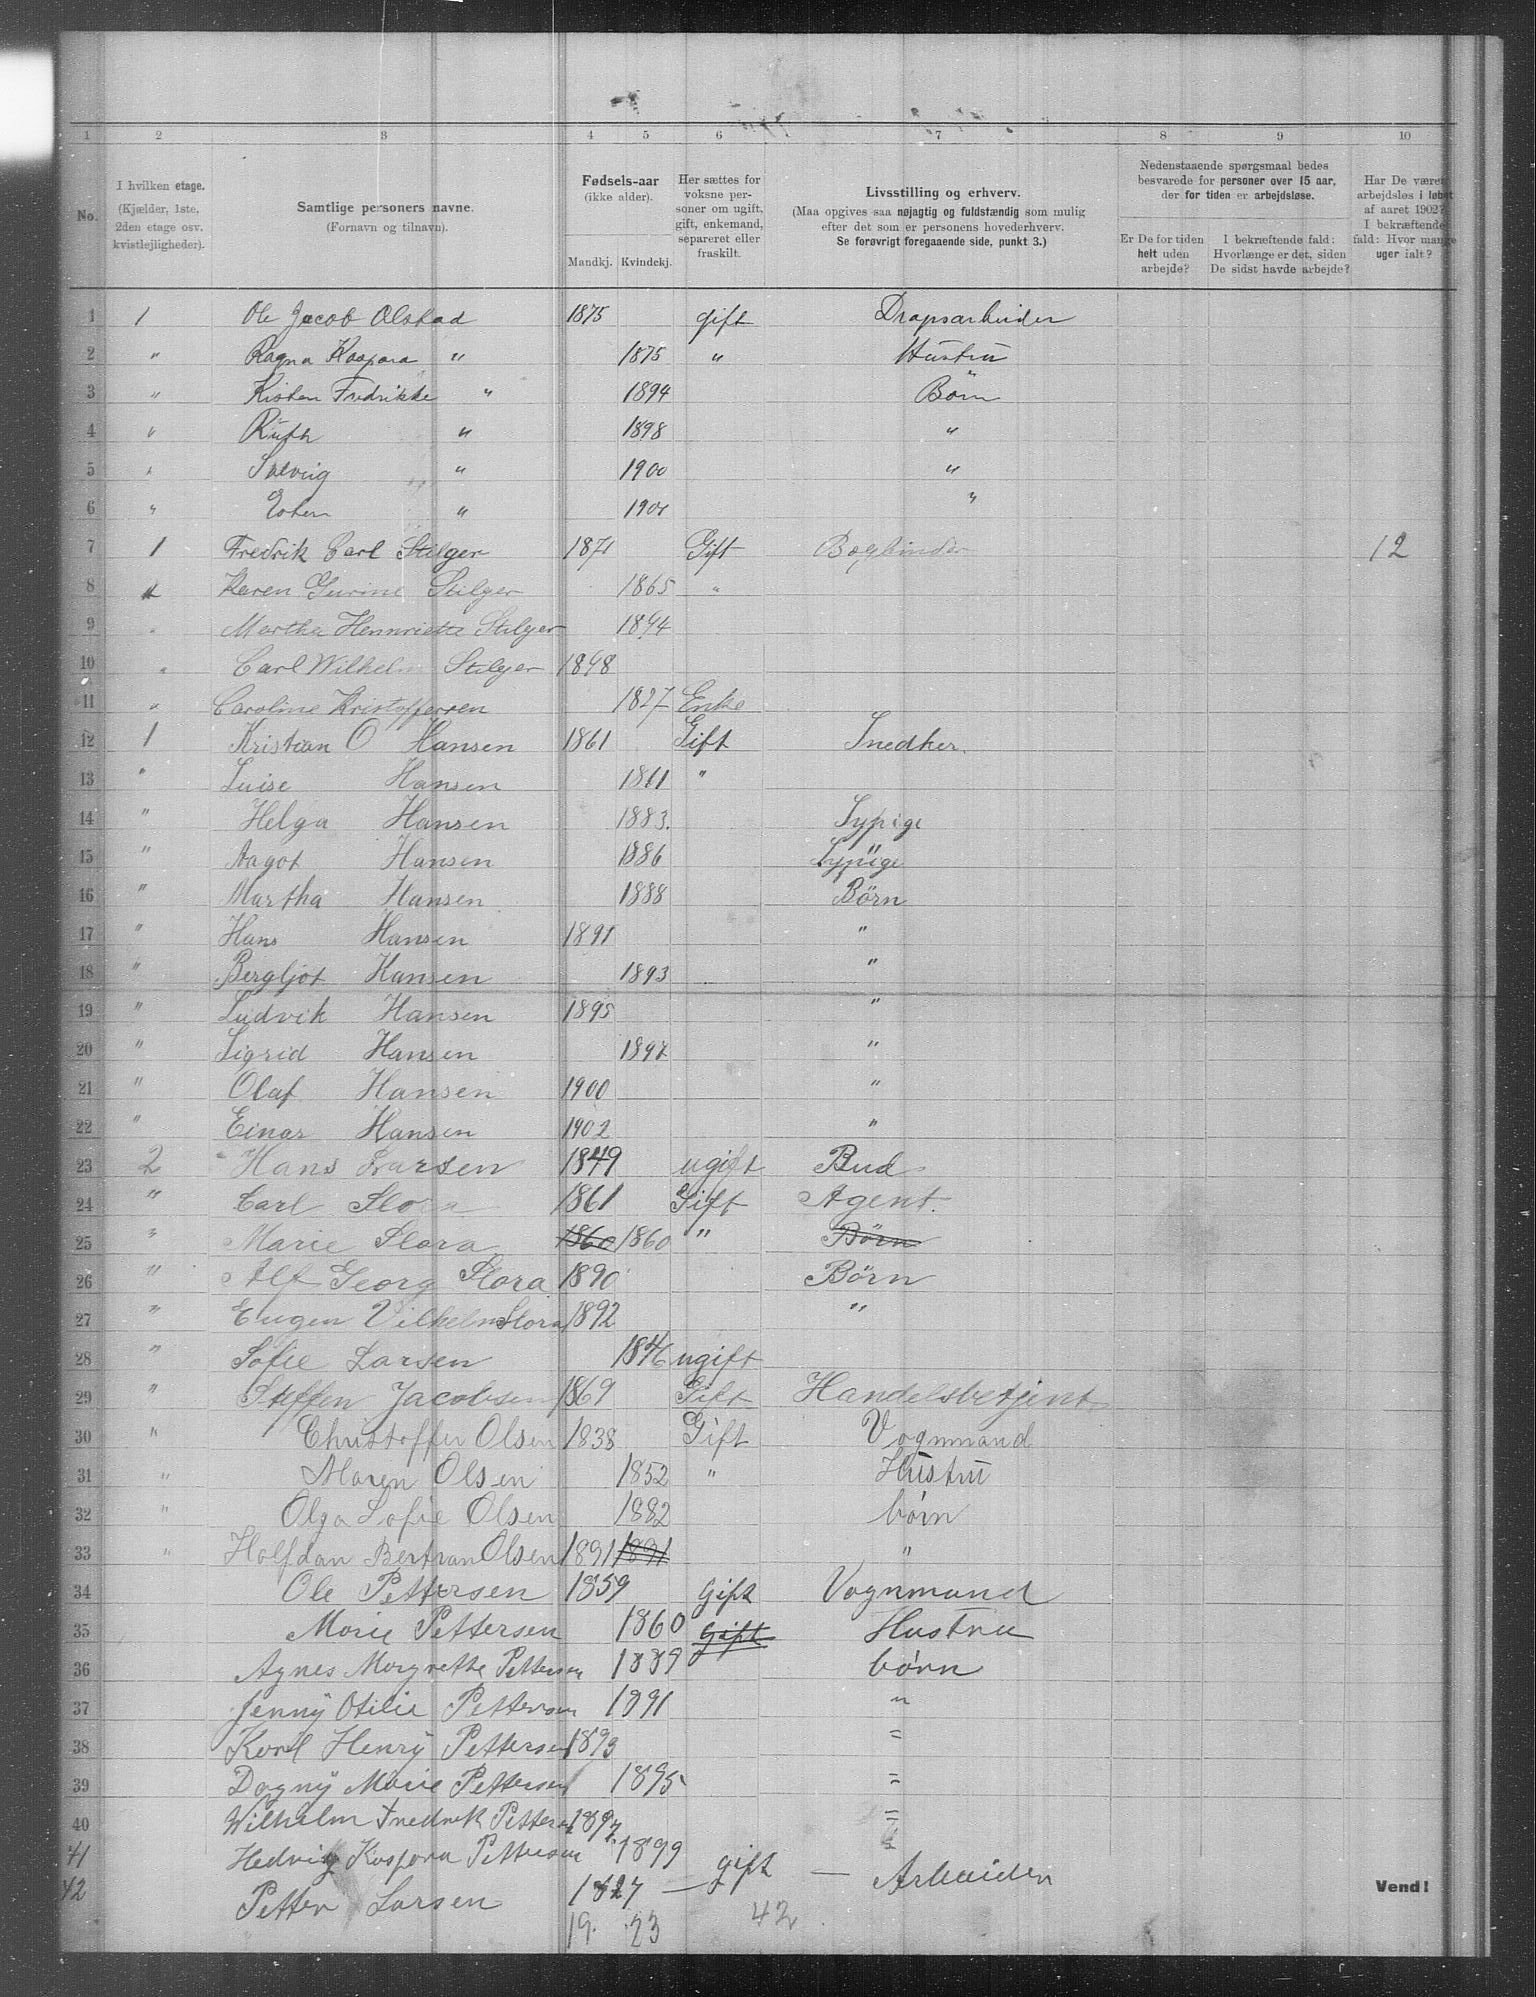 1 2 3 4 5 6 7 8 9 10
No.
I hvilken etage. (Kjælder, 1ste, 2den etage osv. kvistlejligheder).
Samtlige personers navne. (Fornavn og tilnavn).
Fødsels-aar (ikke alder). Mandkj. Kvindekj.
Her sættes for voksne personer om ugift, gift, enkemand, separeret eller fraskilt.
Livsstilling og erhverv. (Maa opgives saa nøjagtig og fuldstændig som mulig efter det som er personens hovederhverv. Se forøvrigt foregaaende side, punkt 3.)
Nedenstaaende spørgsmaal bedes besvarede for personer over 15 aar, der for tiden er arbejdsløse.
Er De for tiden helt uden arbejde?
I bekræftende fald: Hvorlænge er det, siden De sidst havde arbejde?
Har De været arbejdsløs i løbet af aaret 1902? I bekræftende fald: Hvor mange uger ialt?
1 1 Ole Jacob Olstad 1875 gift
2 " Ragna Kaspara " 1875 " Hustru
3 " Kisten Fredrikke " 1894 Børn
4 " Ruth " 1898 "
5 " Solveig " 1900 "
6 " " 1901 "
7 1 Fredrik Carl Stilger 1871 Gift Bogbinder 12
8 " Karen Gurine Stilger 1865 "
9 " Martha Hennriette Stilger 1894
10 " Carl Wilhelm Stilger 1898
11 " Caroline Kristoffersen 1827 Enke
12 1 Kristian O Hansen 1861 Gift Snedker.
13 " Luise Hansen 1861 "
14 " Helga Hansen 1883. Sypige
15 " Aagot Hansen 1886 Sypige
16 " Martha Hansen 1888 Børn
17 " Hans Hansen 1891 "
18 " Bergljot Hansen 1893 "
19 " Ludvik Hansen 1895 "
20 " Sigrid Hansen 1897 "
21 " Olaf Hansen 1900 "
22 " Einar Hansen 1902 "
23 2 Hans Larsen 1849 ugift Bud
24 " Carl Flora 1861 Gift Agent.
25 " Marie Flora 1860 1860 " Børn
26 " Alf Georg Flora 1890 Børn
27 " Eugen Vilhelm Flora 1892 "
28 " Sofie Larsen 1846 ugift
29 " Steffen Jacobsen 1869 Gift Handelsbetjent
30 " Christoffer Olsen 1838 Gift Vognmand
31 " Maren Olsen 1852 " Hustru
32 " Olga Sofie Olsen 1882 børn
33 " Halfdan Bertran Olsen 1891 1891 "
34 Ole Pettersen 1859 Gift Vognmand
35 Marie Pettersen 1860 Gift Hustru
36 Agnes Margrethe Pettersen 1889 børn
37 Jenny Otilie Pettersen 1891 "
38 Karl Henry Pettersen 1893 "
39 Dagny Marie Pettersen 1895 "
40 Wilhelm Fredrik Pettersen 1897. "
41 Hedvig Kaspara Pettersen 1899 "
42 Petter Larsen 1827 — gift — Arbeider
19. 23 42
Vend!